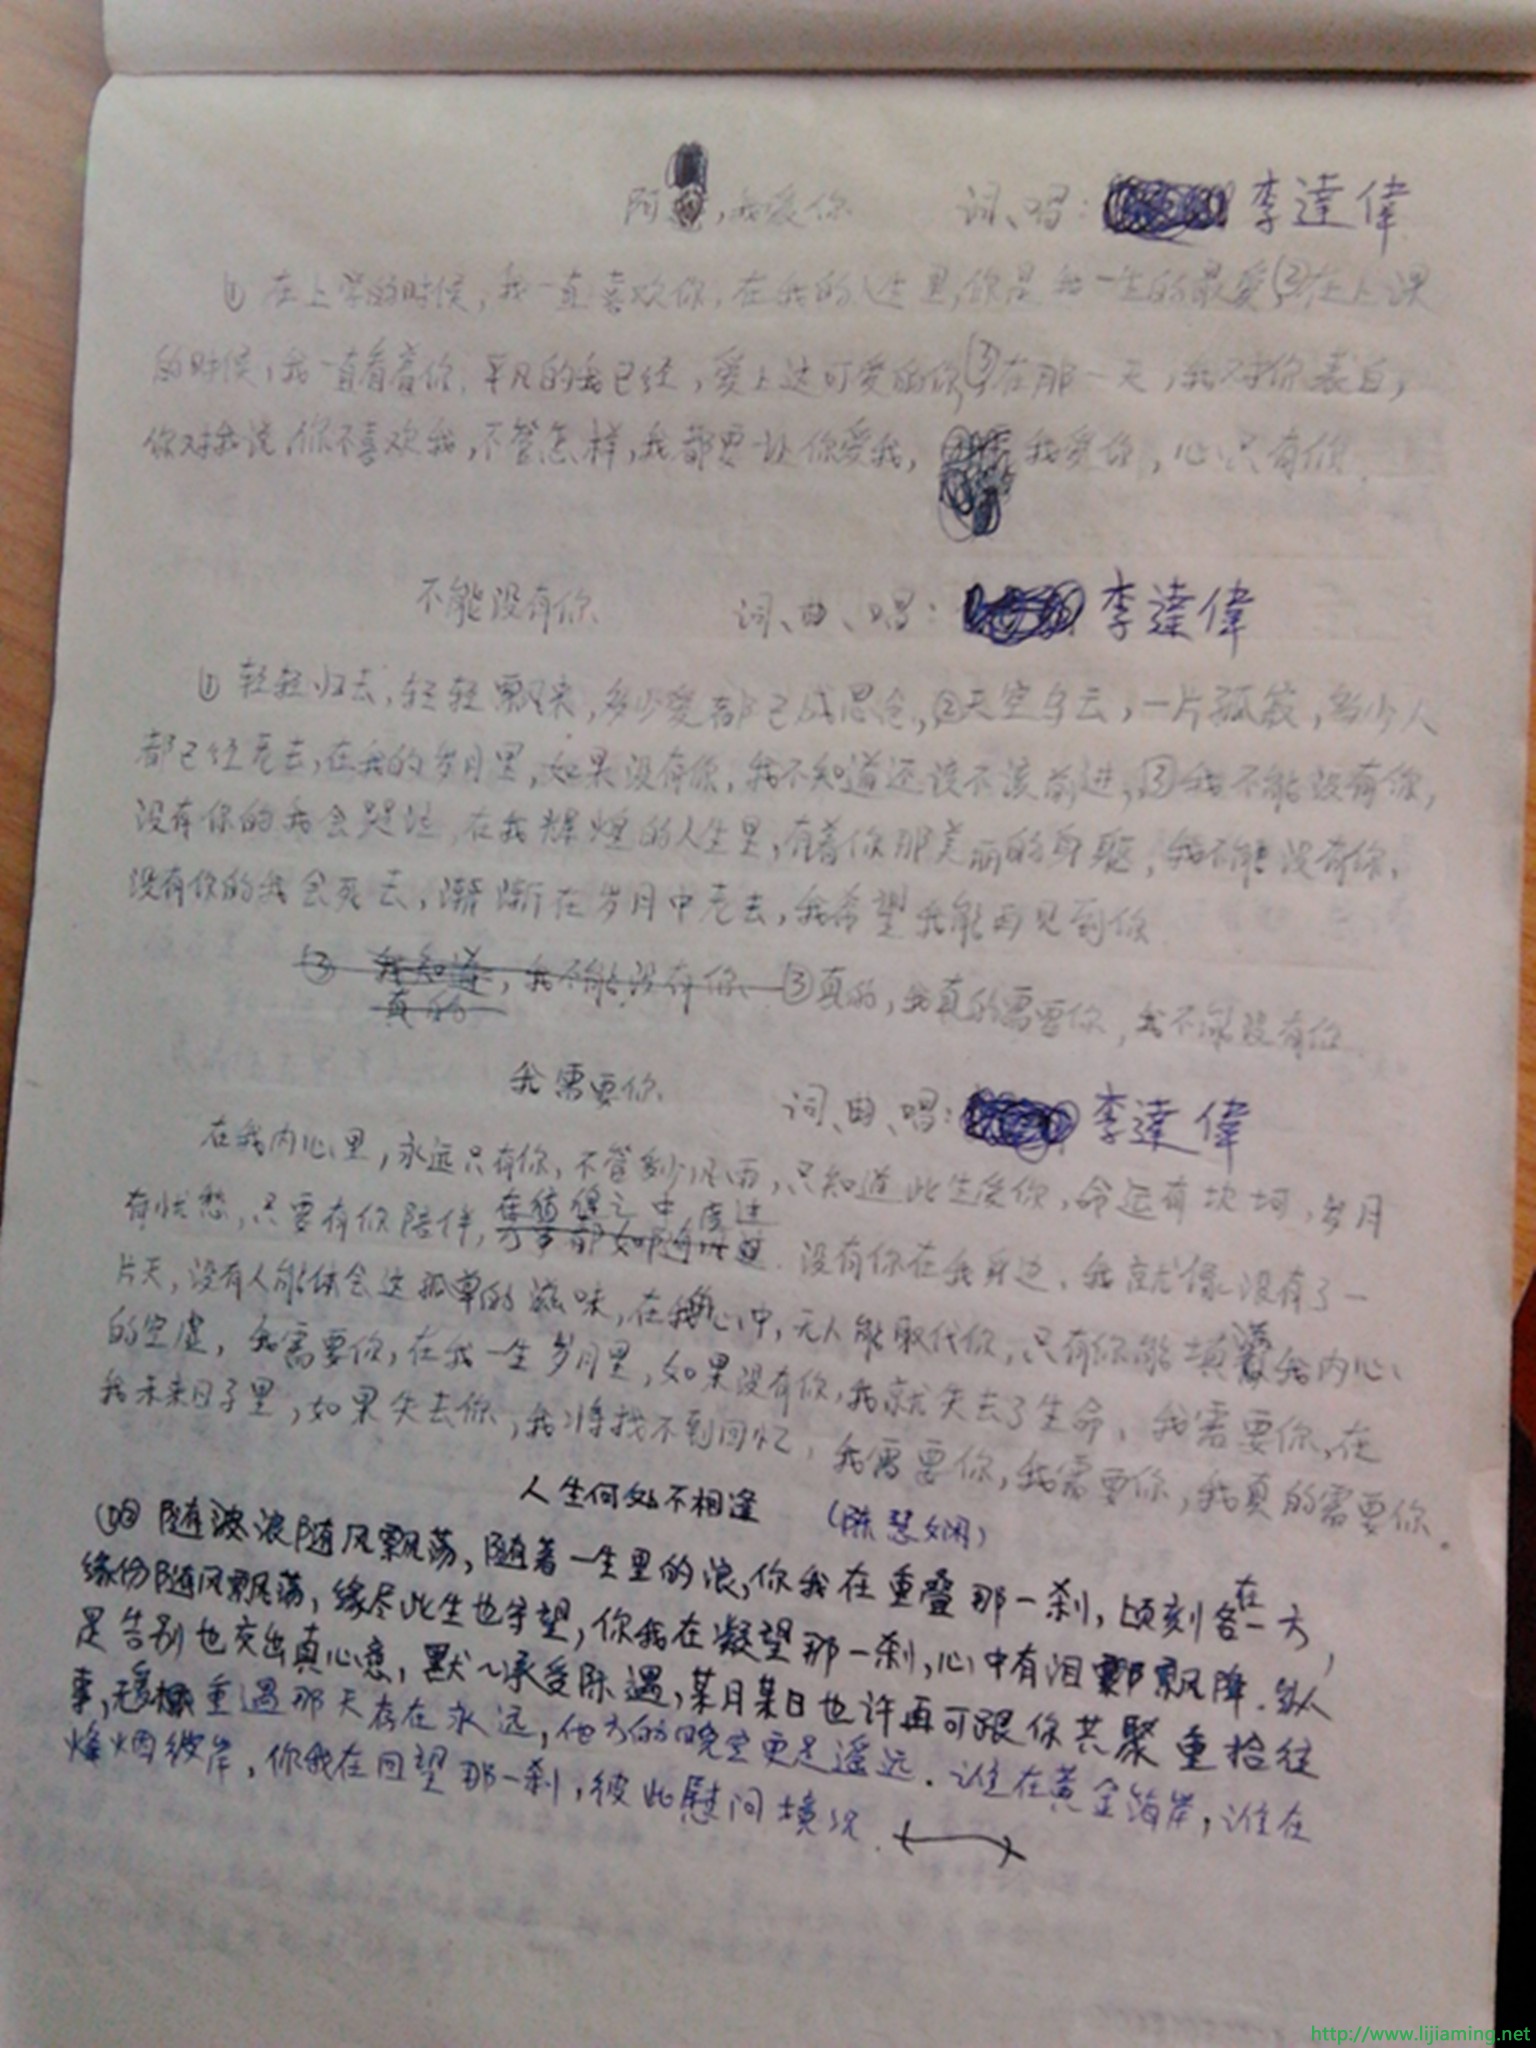 阿，我爱你 词、唱：李達偉
① 在上学的时候，我一直喜欢你，在我的人生里，你是我一生的最爱，②在上课
的时候，我一直看着你，平凡的我已经，爱上这可爱的你，③在那一天，我对你表白，
你对我说，你不喜欢我，不管怎样，我都要让你爱我，我爱你，心只有你．
不能没有你 词、曲、唱：李達偉
① 轻轻归去，轻轻飘来，多少爱都已成思念，②天空乌云，一片孤寂，多少人
都已经老去，在我的岁月里，如果没有你，我不知道还该不该前进，③我不能没有你，
没有你的我会哭泣，在我辉煌的人生里，有着你那美丽的身躯，我不能没有你，
没有你的我会死去，渐渐在岁月中老去，我希望我能再见到你
③ 我知道，我不能没有你、③真的，我真的需要你，我不能没有你
真的
我需要你 词、曲、唱：李達偉
在我内心里，永远只有你，不管多少风雨，只知道此生爱你，命运有坎坷，岁月
有忧愁，只要有你陪伴，在彷徨之中，度过．没有你在我身边，我就像没有了一
片天，没有人能体会这孤单的滋味，在我心中，无人能取代你，只有你能填满我内心
的空虚，我需要你，在我一生岁月里，如果没有你，我就失去了生命，我需要你，在
我未来日子里，如果失去你，我将找不到回忆，我需要你，我需要你，我真的需要你．
人生何处不相逢 （陈慧娴）
随波浪随风飘荡，随着一生里的浪，你我在重叠那一刹，顷刻各在一方，
缘份随风飘荡，缘尽此生也守望，你我在凝望那一刹，心中有泪飘降．纵
是告别也交出真心意，默默承受际遇，某月某日也许再可跟你共聚重拾往
事，无重遇那天存在永远，他方的晚空更是遥远．谁在黄金海岸，谁在
烽烟彼岸，你我在回望那一刹，彼此慰问境况．
http://www.lijiaming.net